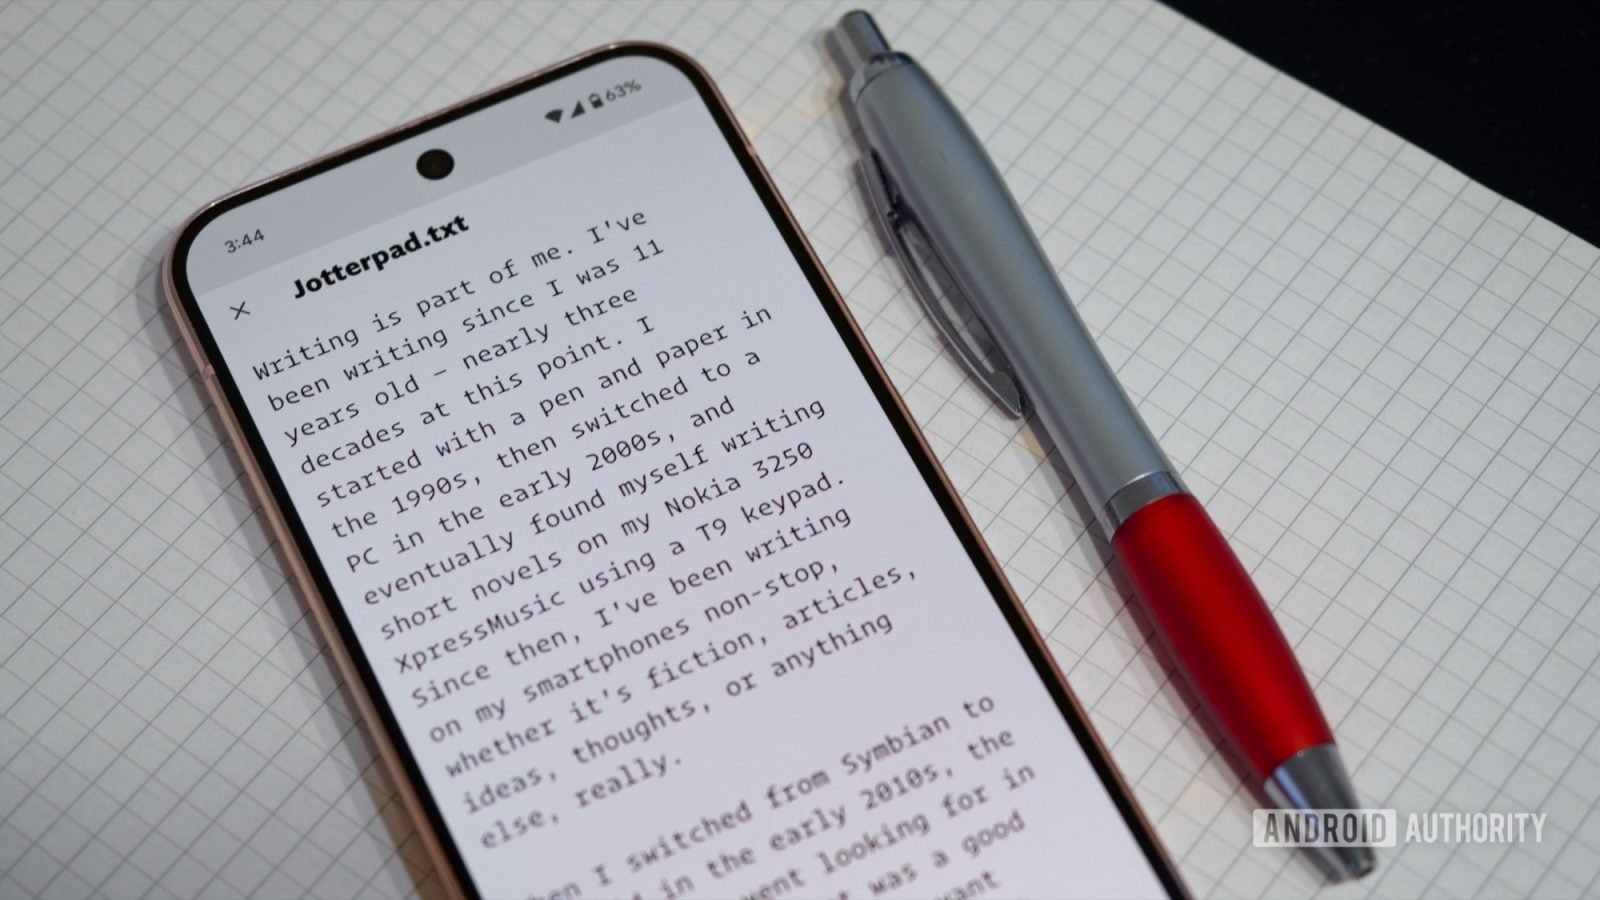 3:44
63%
Jotterpad.txt
Writing is part of me. I've
been writing since I was 11
years old – nearly three
decades at this point. I
started with a pen and paper in
the 1990s, then switched to a
PC in the early 2000s, and
eventually found myself writing
short novels on my Nokia 3250
XpressMusic using a T9 keypad.
Since then, I've been writing
on my smartphones non-stop,
whether it's fiction, articles,
ideas, thoughts, or anything
else, really.
I switched from Symbian to
in the early 2010s, the
went looking for in
was a good
ANDROID AUTHORITY